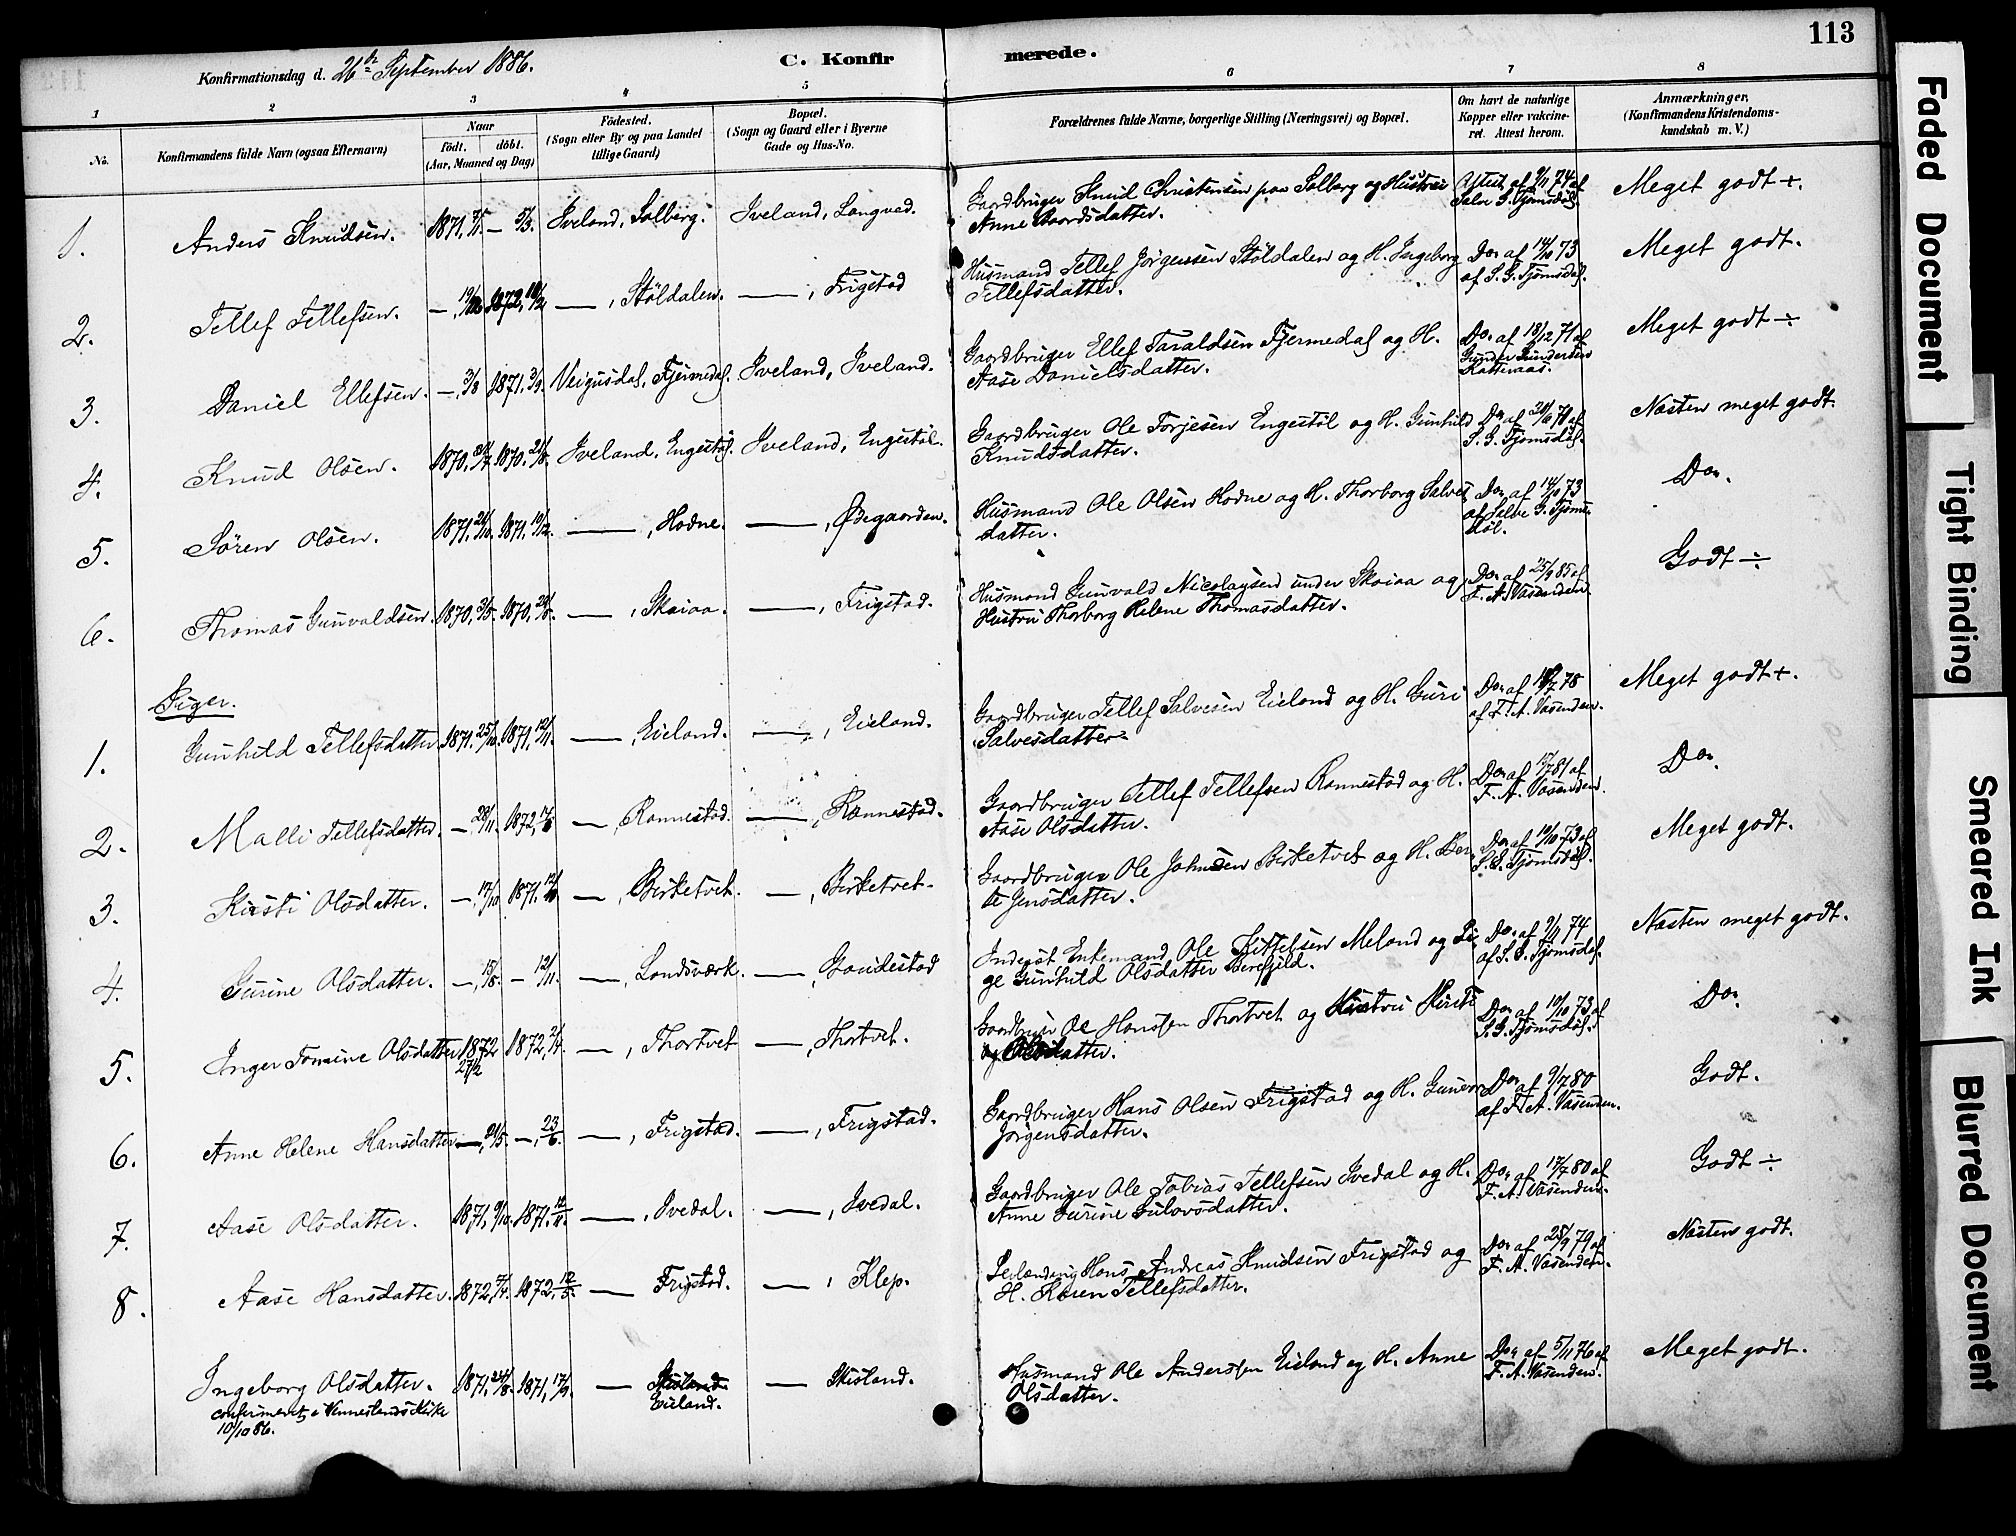 113
Konfirmationsdag d. 26de September 1886. C. Konfirmerede.
1 2 3 4 5 6 7 8
No. Konfirmandens fulde Navn (ogsaa Efternavn) Naar Født. døbt. (Aar, Maaned og Dag) Fødested. (Sogn eller By og paa Landet tillige Gaard) Bopæl. (Sogn og Gaard eller i Byerne Gade og Hus-No. Forældrenes fulde Navne, borgerlige Stilling (Næringsvei) og Bopæl. Om havt de naturlige Kopper eller vakcineret. Attest herom. Anmærkninger. (Konfirmandens Kristendomskundskab m. V.)
1. Anders Knudsen. 1871, — 5/3. Iveland, Solberg. Iveland, Langved. Gaardbruger Knud Christensen paa Solberg og Hustru Anne Attest af 9/1 74 af Salve G. Tjomsdøl. Meget godt +.
2. Tellef Tellefsen. — 1872, — , Støldalen. — , Frigstad Husmand Tellef Jørgensen Støldalen og H. Ingeborg Tellefsdatter. Do. af 14/10 73 af S. G. Tjomsdøl. Meget godt.
3. Daniel Ellefsen. — 3/8 1871. 3/9. Veigusdal, Fjermedal. Iveland, Iveland. Gaardbruger Ellef Taraldsen Fjermedal og H. Aase Danielsdatter. Do. af 18/12 71 af Gunder Gundersen Katteraas. Meget godt ÷
4. Knud Olsen. 1870. 1870. 21/8. Iveland, Engestøl. Iveland, Engestøl. Gaardbruger Ole Torjesen Engestøl og H. Gunhild Knudsdatter. Do. af S. G. Tjomsdøl. Næsten meget godt.
5. Søren Olsen. 1871. 1871. — , Hodne. — , Øvegaarden. Husmand Ole Olsen Hodne og H. Thorborg Salvesdatter. Do. af 14/10 73 af Salve G. Tjomsdøl. Do.
6. Thomas Gunvaldsen. 1870, 1870, — , Skaiaa. — , Frigstad. Husmand Gunvald Nicolaysen under Skaiaa og Hustru Thorborg Helene Thomasdatter. Do. af 25/9 85 af F. A. Vasenden. Godt ÷
Piger.
1. Gunhild Tellefsdatter. 1871. 25/10. 1871, 12/11. — , Eieland. — , Eieland. Gaardbruger Tellef Salvesen Eieland og H. Guri Salvesdatter. Do. af 78 af F. A. Vasenden. Meget godt +.
2. Malli Tellefsdatter. — 28/11. 1872, — , Rannestad. — , Rannestad. Gaardbruger Tellef Tellefsen Rannestad og H. Aase Olsdatter. Do. af 15/7 81 af F. A. Vasenden. Do.
3. Kirsti Olsdatter. — , 17/10 1871. — , Birketvet. — , Birketvet. Gaardbruger Ole Johnsen Birketvet og H. Berte Jensdatter. Do. af 10/10 73 af S. G. Tjomsdøl. Meget godt.
4. Gurine Olsdatter. — , 15/8. — 12/11. — , Landsværk. — , Gaudestad Inderst Enkemand Ole Kittelsen Meland og Pige Gunhild Olsdatter Berefjeld. Do. af 9/1 74 af S. G. Tjomsdøl. Næsten meget godt.
5. Inger Tomine Olsdatter 1872 27/2 1872, 21/4. — , Thortvet — , Thortvet. Gaardbruger Ole Hanssen Thortvet og Hustru Kirsti Olsdatter. Do. af 10/10 73 af S. G. Tjomsdøl. Do.
6. Anne Helene Hansdatter — , 21/5. — , 23/6. — , Frigstad. — , Frigstad. Gaardbruger Hans Olsen Frigstad og H. Gunvor Jørgensdatter. Do. af 9/7 80 af F. A. Vasenden. Godt.
7. Aase Olsdatter. 1871, 9/10. 1871. 12/11. — , Ivedal. — , Ivedal. Gaardbruger Ole Tobias Tellefsen Ivedal og H. Anne Gurine Gulovsdatter. Do. af 17/7 80 af F. A. Vasenden. Godt ÷
8. Aase Hansdatter. 1872, 1872, 12/5. — Frigstad. — , Klep. Leilænding Hans Andreas Knudsen Frigstad og H. Karen Tellefsdatter. Do. af 25/9 79 af F. A. Vasenden. Næsten godt.
Ingeborg Olsdatter. 1871. 24/8. 1871, 17/9. — Skisland Eieland. — Skisland. Husmand Ole Anderssen Eieland og H. Anne Olsdatter. Do. af 5/11 76 af F. A. Vasenden. Meget godt.
confirmeret i Venneslands Kirke
10/10 86.
Faded Document
Tight Binding
Smeared Ink
Blurred Document